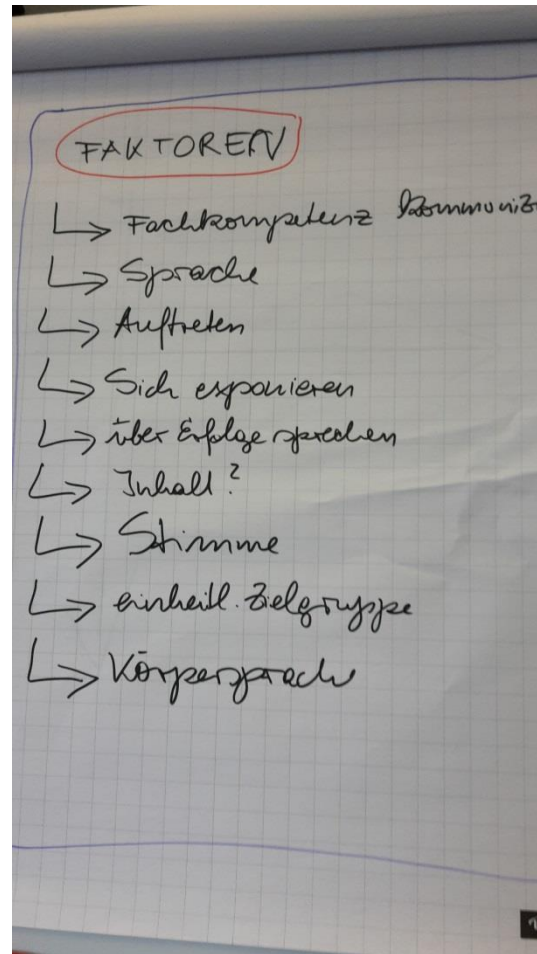 FAKTOREN
Fachkompetenz
Sprache
Auftreten
Sich exponieren
über Erfolge sprechen
Inhalt?
Stimme
einheitl. Zielgruppe
Körpersprache